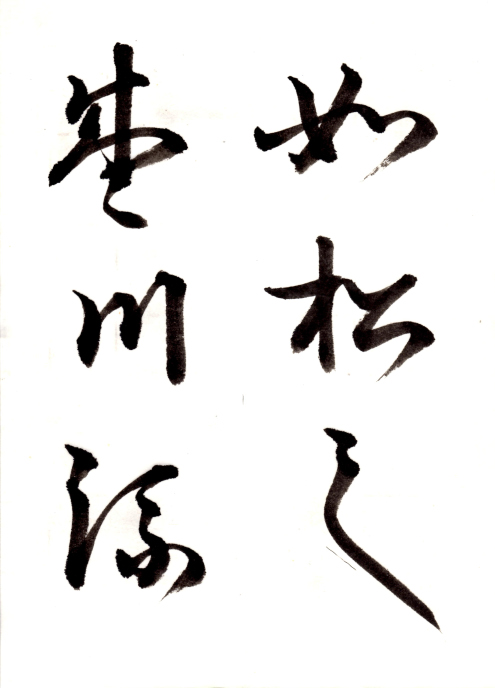 如松之
盛川流